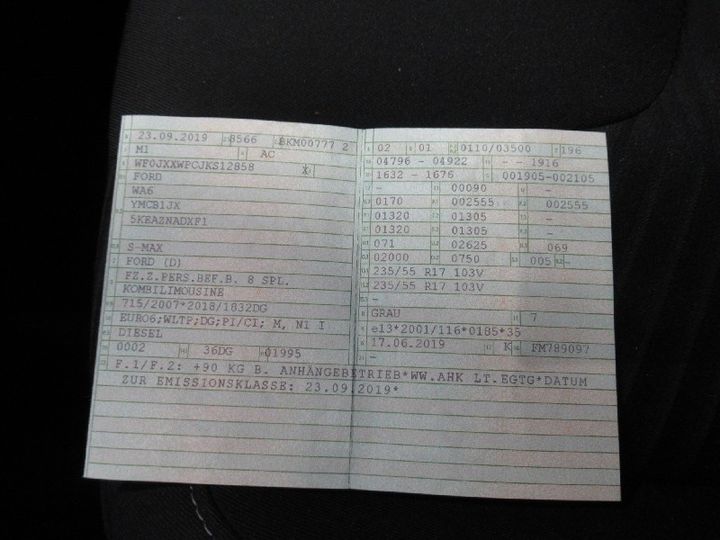 23.09.2019 8566 BKM00777 2
M1 AC
WF0JXXWPCJKS12858
FORD
WA6
YMCB1JX
5KEAZNADXF1
S-MAX
FORD (D)
FZ.Z.PERS.BEF.B. 8 SPL.
KOMBILIMOUSINE
715/2007*2018/1832DG
EURO6;WLTP;DG;PI/CI; M, N1 I
DIESEL
0002 36DG 01995
02 01 0110/03500 196
04796 - 04922 - - 1916
1632 - 1676 001905-002105
- 00090 -
0170 002555 002555
01320 01305 -
01320 01305 -
071 02625 069
02000 0750 005 -
235/55 R17 103V
235/55 R17 103V
-
GRAU 7
e13*2001/116*0185*35
17.06.2019 K FM789097
-
F.1/F.2: +90 KG B. ANHÄNGEBETRIEB*WW.AHK LT.EGTG*DATUM
ZUR EMISSIONSKLASSE: 23.09.2019*